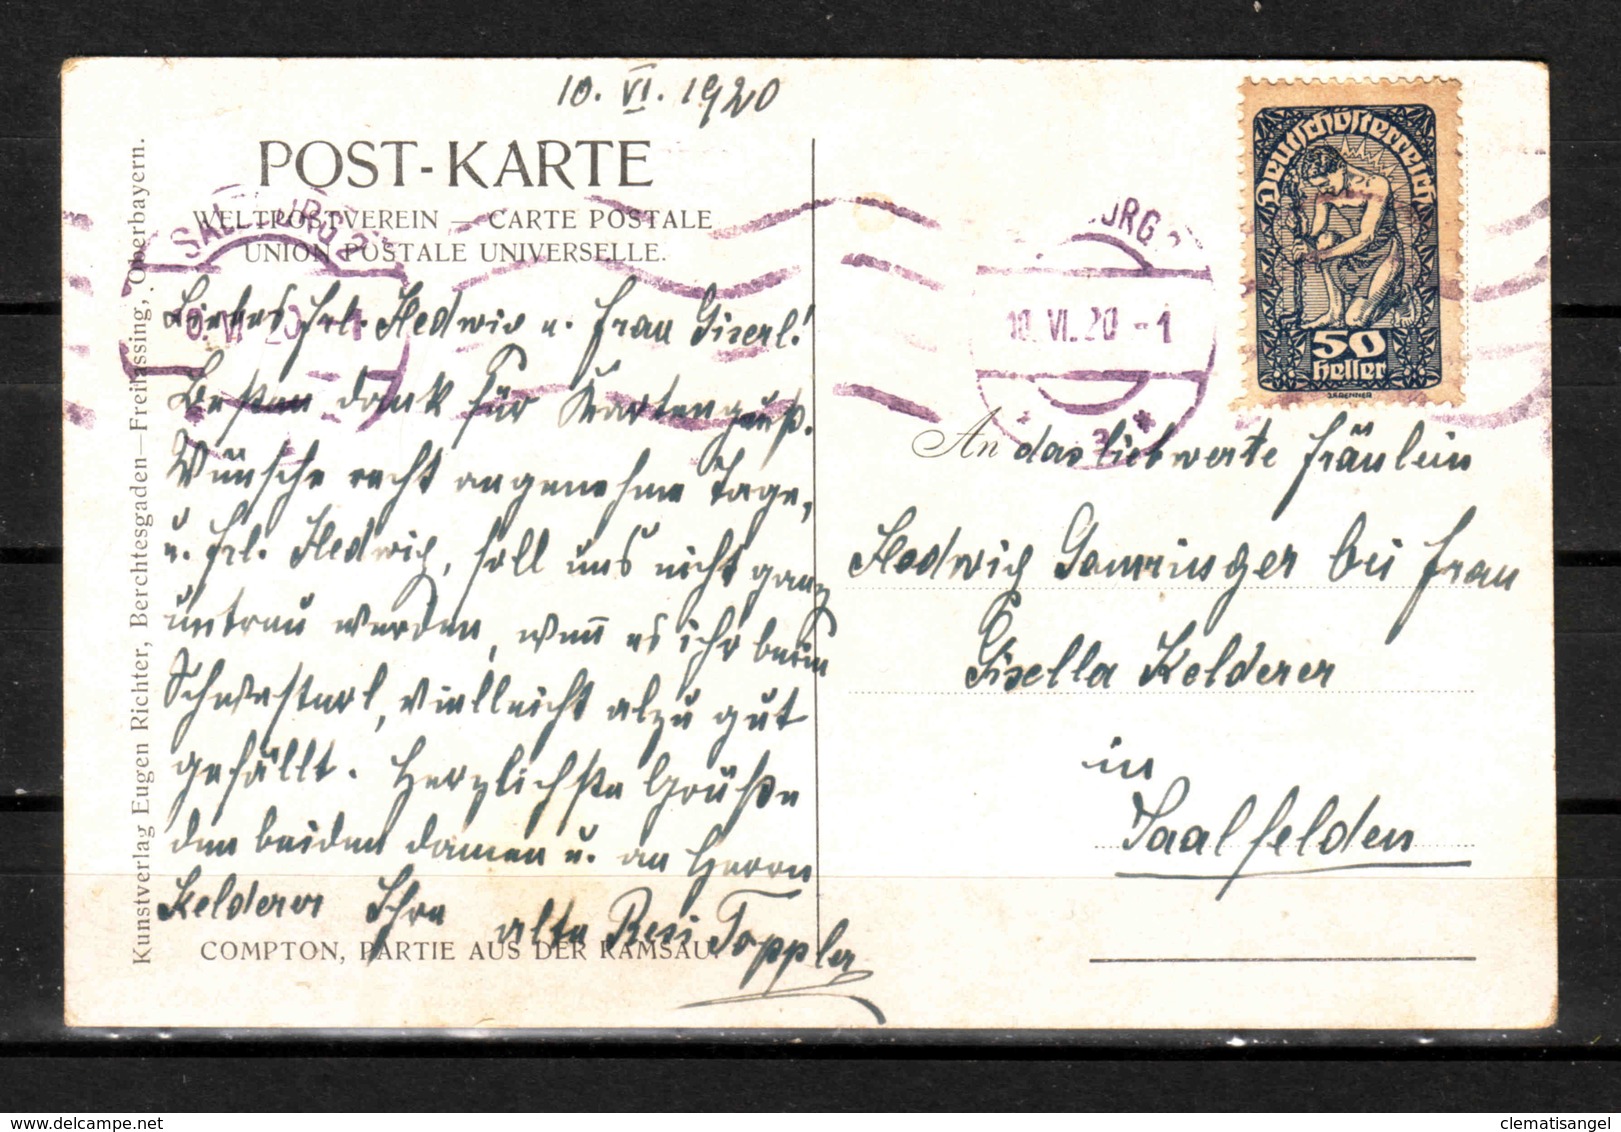 10. VI. 1920
POST-KARTE
WELTPOSTVEREIN — CARTE POSTALE
UNION POSTALE UNIVERSELLE.
Liebes Frl. Hedwig u. Frau Giserl!
Besten Dank für Kartengruß.
Wünsche recht angenehme Tage,
u. Frl. Hedwig, soll uns nicht ganz
untreu werden, wenn es ihr beim
vielleicht alzu gut
gefällt. Herzlichste Grüße
den beiden Damen u. an Herrn
Kelderer Ihre alte Resi Toppler
COMPTON, PARTIE AUS DER RAMSAU
Kunstverlag Eugen Richter, Berchtesgaden—Freilassing, Oberbayern.
SALZBURG 2
10. VI. 20 - 1
BURG 2
10. VI. 20 - 1
* 3 *
Deutschösterreich
50
Heller
An das liebwerte Fräulein
Hedwig bei Frau
Gisella Kelderer
in
Saalfelden
clematisangel